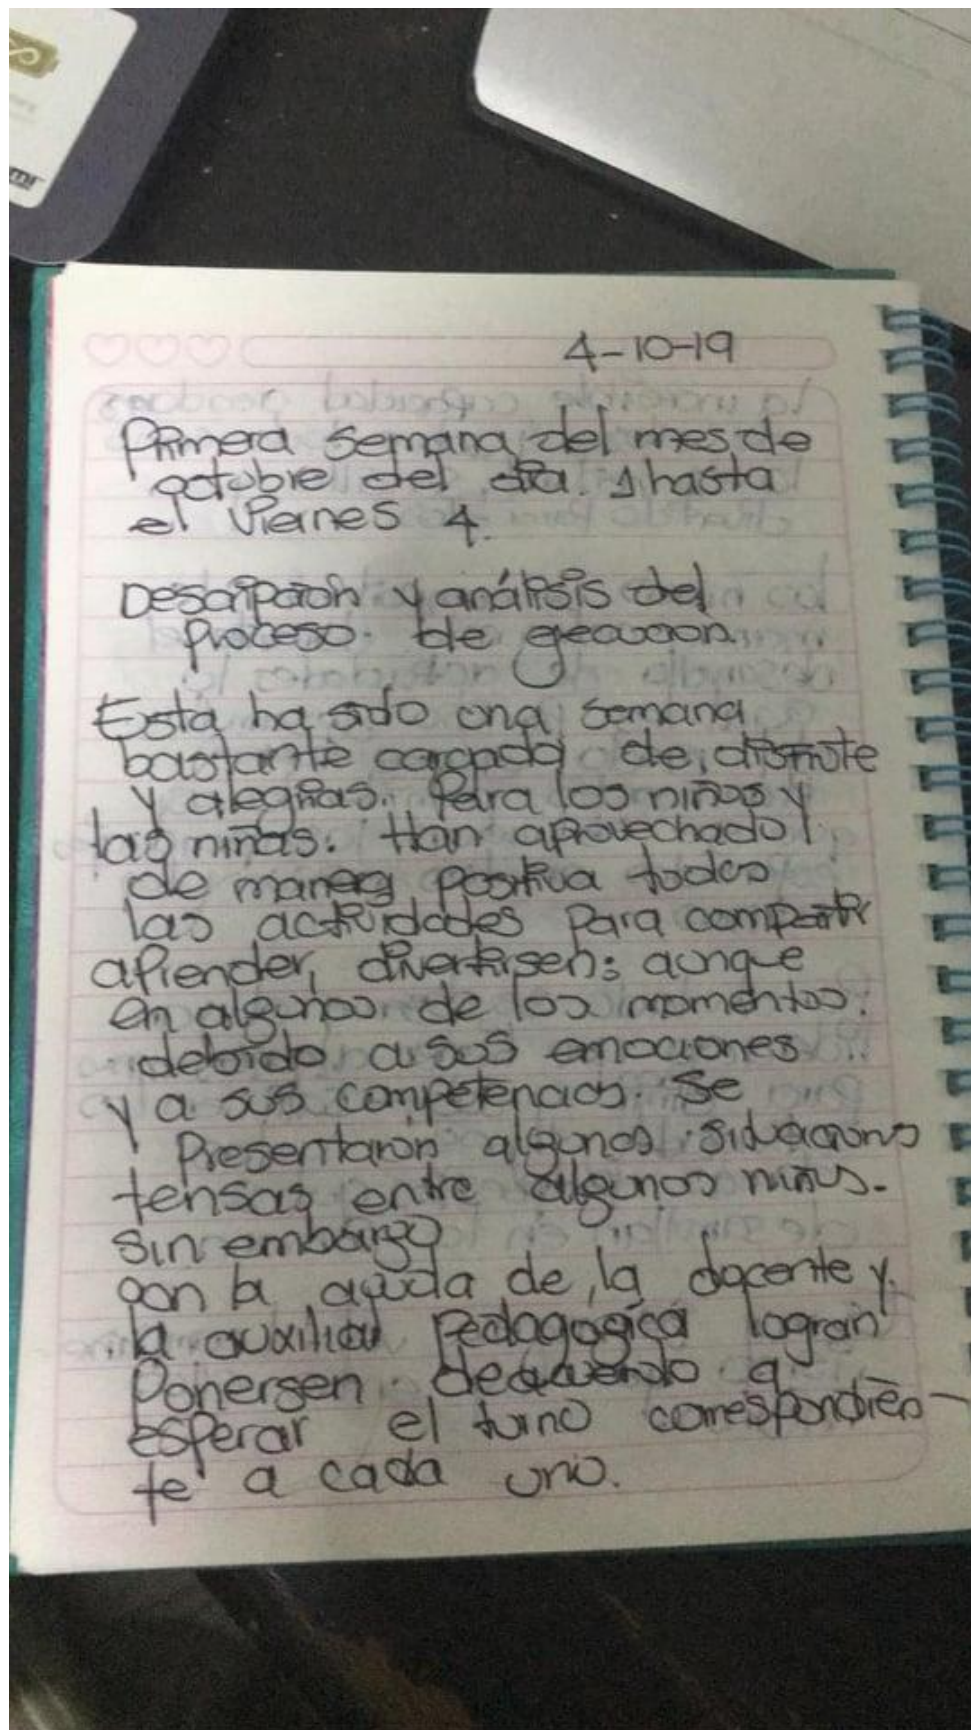 mi
4-10-19
Primera semana del mes de
octubre del dia 1 hasta
el viernes 4.
Descripcion y análisis del
proceso de ejecucion.
Esta ha sido una semana
bastante cargada de disfrute
y alegrias. Para los niños y
las niñas. Han aprovechado
de manera positiva todas
las actividades para compartir
aprender, divertirsen; aunque
en algunos de los momentos
debido a sus emociones
y a sus competencias. Se
presentaron algunas situaciones
tensas entre algunos niños.
sin embargo
con la ayuda de la docente y
la auxiliar pedagogíca logran
Ponersen deacuerdo a
esperar el turno correspondien-
te a cada uno.